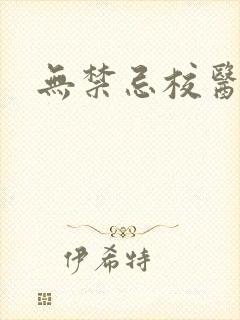 無禁忌校醫
伊希特